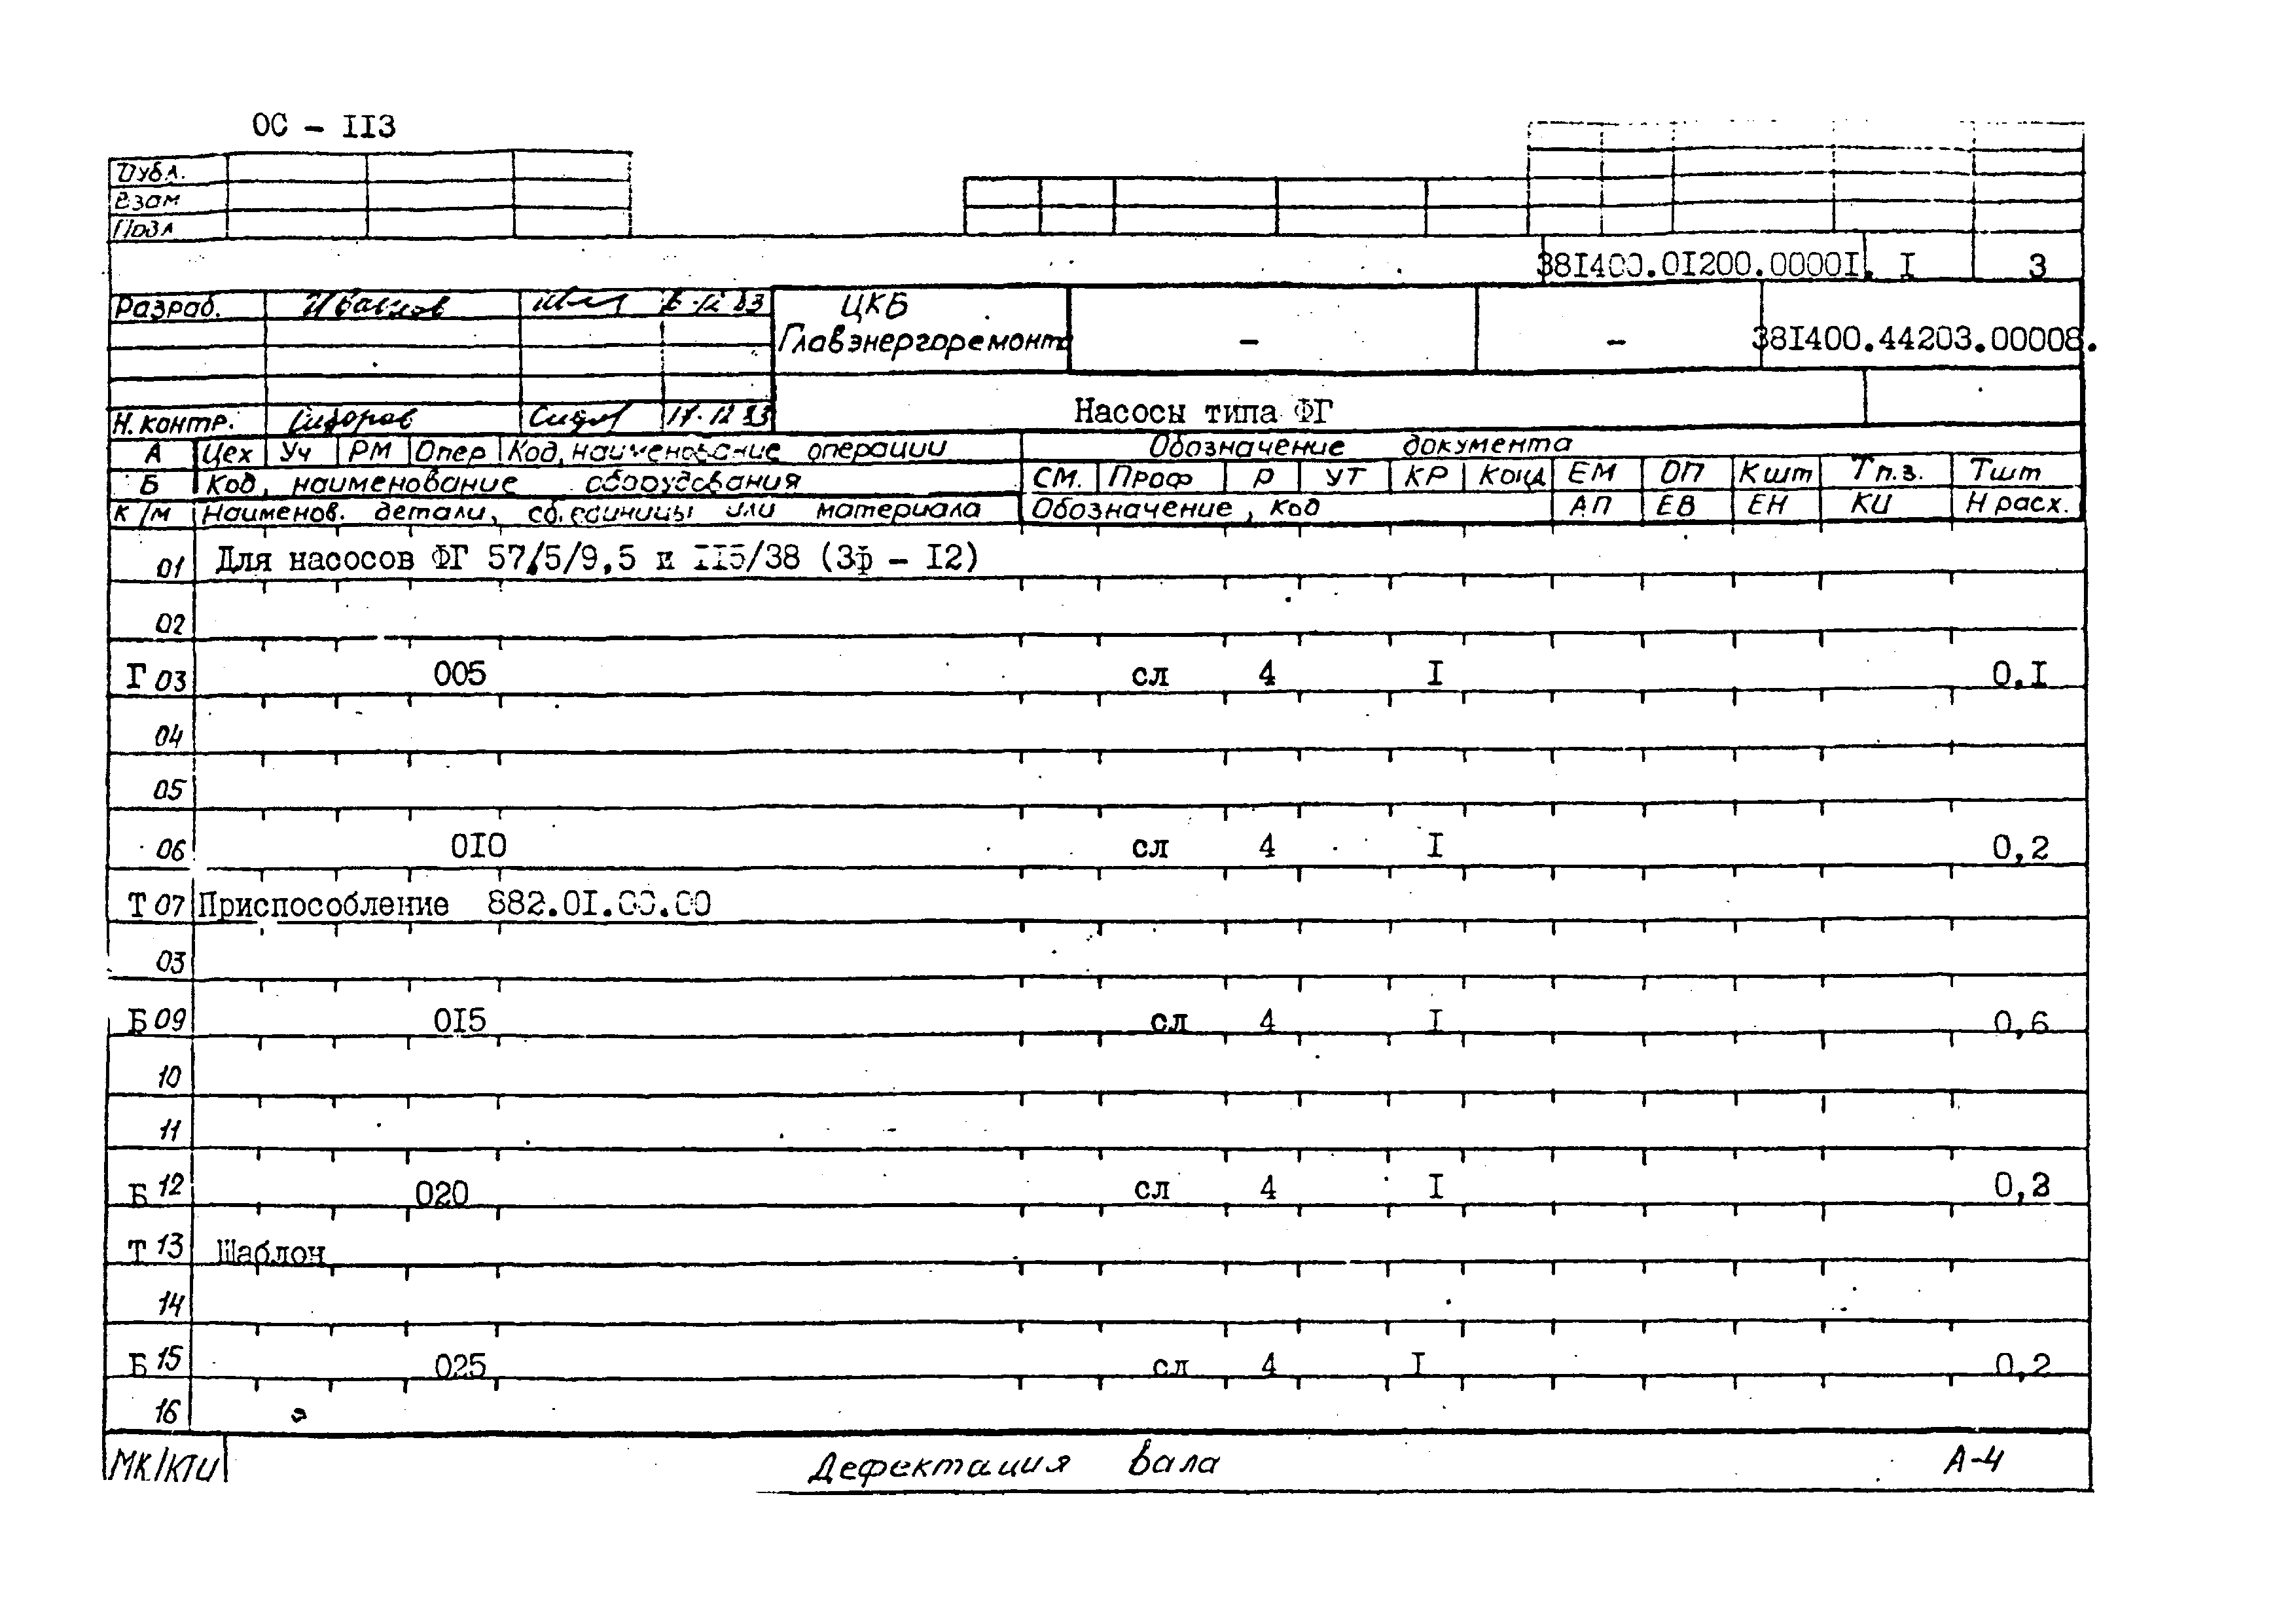 ОС - II3
Дубл.
Взам
Подл
38I400.0I200.0000I. I 3
Разраб. Иванов 12 83 ЦКБ
Главэнергоремонт - - 38I400.44203.00008.
Н. контр. Сидоров 12 83 Насосы типа ФГ
А Цех Уч РМ Опер Код, наименование операции Обозначение документа
Б Код, наименование оборудования СМ. Проф Р УТ КР Коид ЕМ ОП К шт Т п.з. Тшт
К/М Наименов. детали, сб.единицы или материала Обозначение, код АП ЕВ ЕН КИ Н расх.
01 Для насосов ФГ 57,5/9,5 и II5/38 (3ф - I2)
02
Г 03 005 сл 4 I 0,I
04
05
06 0I0 сл 4 I 0,2
Т 07 Приспособление 882.0I.00.00
03
Б 09 0I5 сл 4 I 0,6
10
11
Б 12 020 сл 4 I
Т 13 Шаблон
14
Б 15 025 сл 4 I 0,2
16
МК/КТИ Дефектация вала А-4